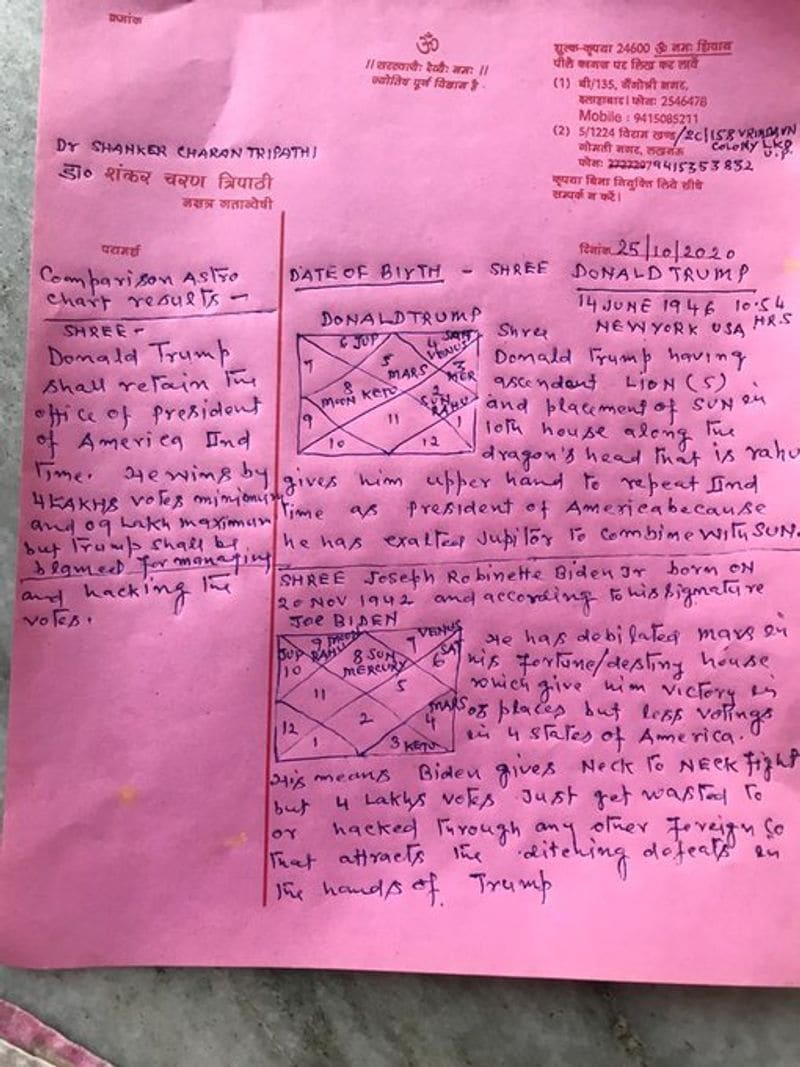 क्रमांक
ॐ
// सरस्वत्यैः देव्यैः नमः //
ज्योतिष पूर्ण विज्ञान है.
शुल्क-कृपया 24600 ॐ नमः शिवाय
पीले कागज पर लिख कर लावें
(1) बी/135,
इलाहाबाद। फोनः 2546478
Mobile : 9415085211
(2) 5/1224 विराम खण्ड/2C/158 VRINDAVN
गोमती नगर, लखनऊ COLONY LKO
U.P.
फोनः 9415353832
कृपया बिना नियुक्ति लिये सीधे
सम्पर्क न करें।
Dr SHANKER CHARAN TRIPATHI
डा० शंकर चरण त्रिपाठी
नक्षत्र गतान्वेषी
परामर्श
दिनांक 25/10/2020
Comparison Astro
chart results -
SHREE -
Donald Trump
shall retain the
office of president
of America IInd
time. He wins by
4 LAKHS votes minimum
and 09 Lakh maximum
but Trump shall be
blamed for managing
and hacking the
votes.
DATE OF BIYTH - SHREE DONALD TRUMP
14 JUNE 1946 10.54
HRS
NEWYORK USA
DONALD TRUMP
6 JUP
4 SAT
VENUS
7
5
MARS
3
MER
8
MOON KETU
2
SUN
RAHU
9
11
1
10
12
Shree
Donald Trump having
ascendant LION (5)
and placement of SUN in
10th house along the
dragon's head that is rahu
gives him upper hand to repeat IInd
time as president of America because
he has exalted Jupitor to combine with SUN.
SHREE Joseph Robinette Biden Jr born ON
20 NOV 1942 and according to his signature
JOE BIDEN
9 MOON
RAHU
7 VENUS
JUP
10
8 SUN
MERCURY
6 SAT
11
5
12
2
MARS
4
1
3 KETU
He has debilated mars in
his fortune/destiny house
which give him victory in
08 places but less votings
in 4 states of America.
His means Biden gives Neck to NECK fight
but 4 Lakhs votes Just get wasted to
or hacked through any other foreign so
that attracts the ditching defeats in
the hands of Trump